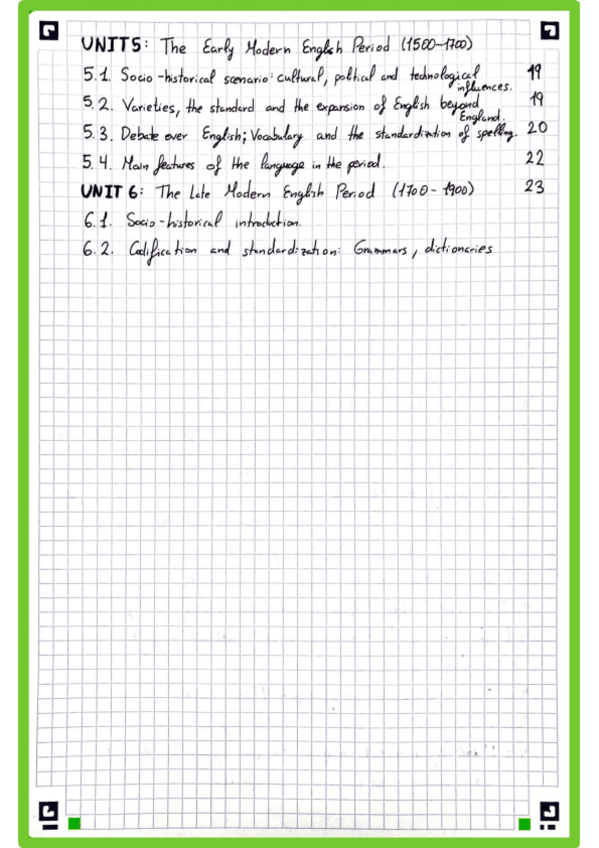 UNIT5: The Early Modern English Period (1500-1700)
5.1. Socio-historical scenario: cultural, political and technological influences. 19
5.2. Varieties, the standard and the expansion of English beyond England. 19
5.3. Debate over English; Vocabulary and the standardization of spelling. 20
5.4. Main features of the language in the period. 22
UNIT 6: The Late Modern English Period (1700-1900) 23
6.1. Socio-historical introduction.
6.2. Codification and standardization: Grammars, dictionaries